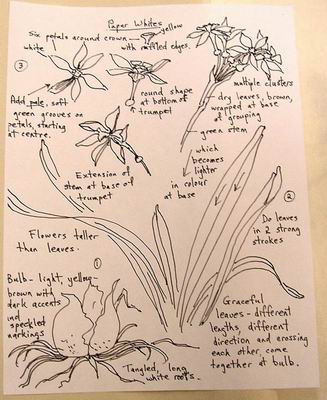 Paper Whites
Six petals around crown
yellow
white
with ruffled edges.
③
round shape
at bottom of
trumpet
multiple clusters
dry leaves, brown,
wrapped at base
of grouping
green stem
Add pale, soft
green grooves on
petals, starting
at centre.
which
becomes
lighter
in colour
at base
Extension of
stem at base of
trumpet
②
Do leaves
in 2 strong
strokes
Flowers taller
than leaves.
①
Bulb - light, yellow-
brown with
dark accents
and
speckled
markings
Graceful
leaves - different
lengths, different
direction and crossing
each other, come
together at bulb.
Tangled, long
white roots.